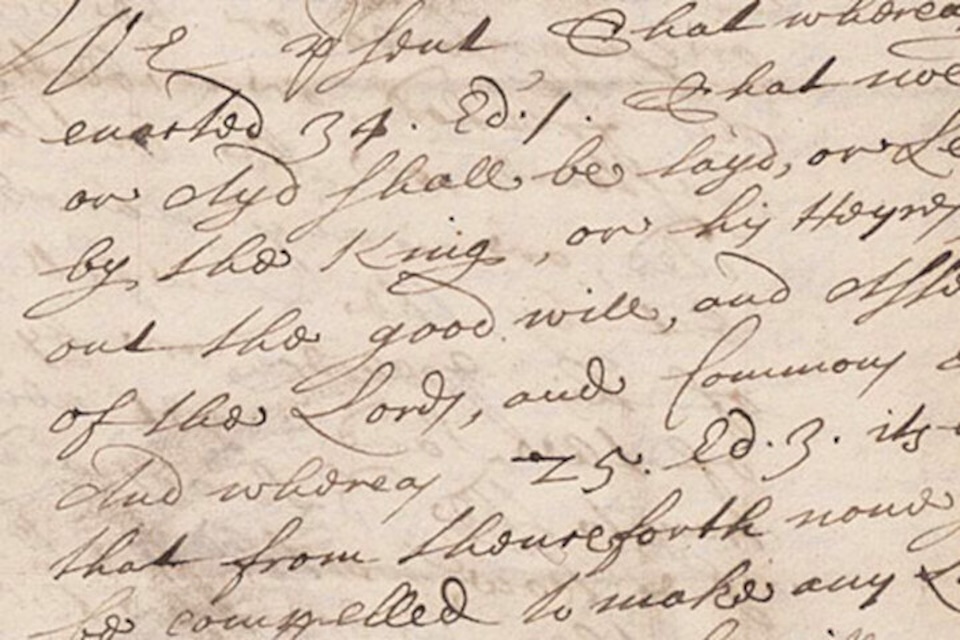 We p'sent That wherea
enacted 34. Ed. 1. That noe
or Ayd shall be layd, or Le
by the King, or his Heyres
out the good will, and Asse
of the Lords, and Commons
And whereas 25. Ed. 3. its
that from thenceforth none
be compelled to make any L